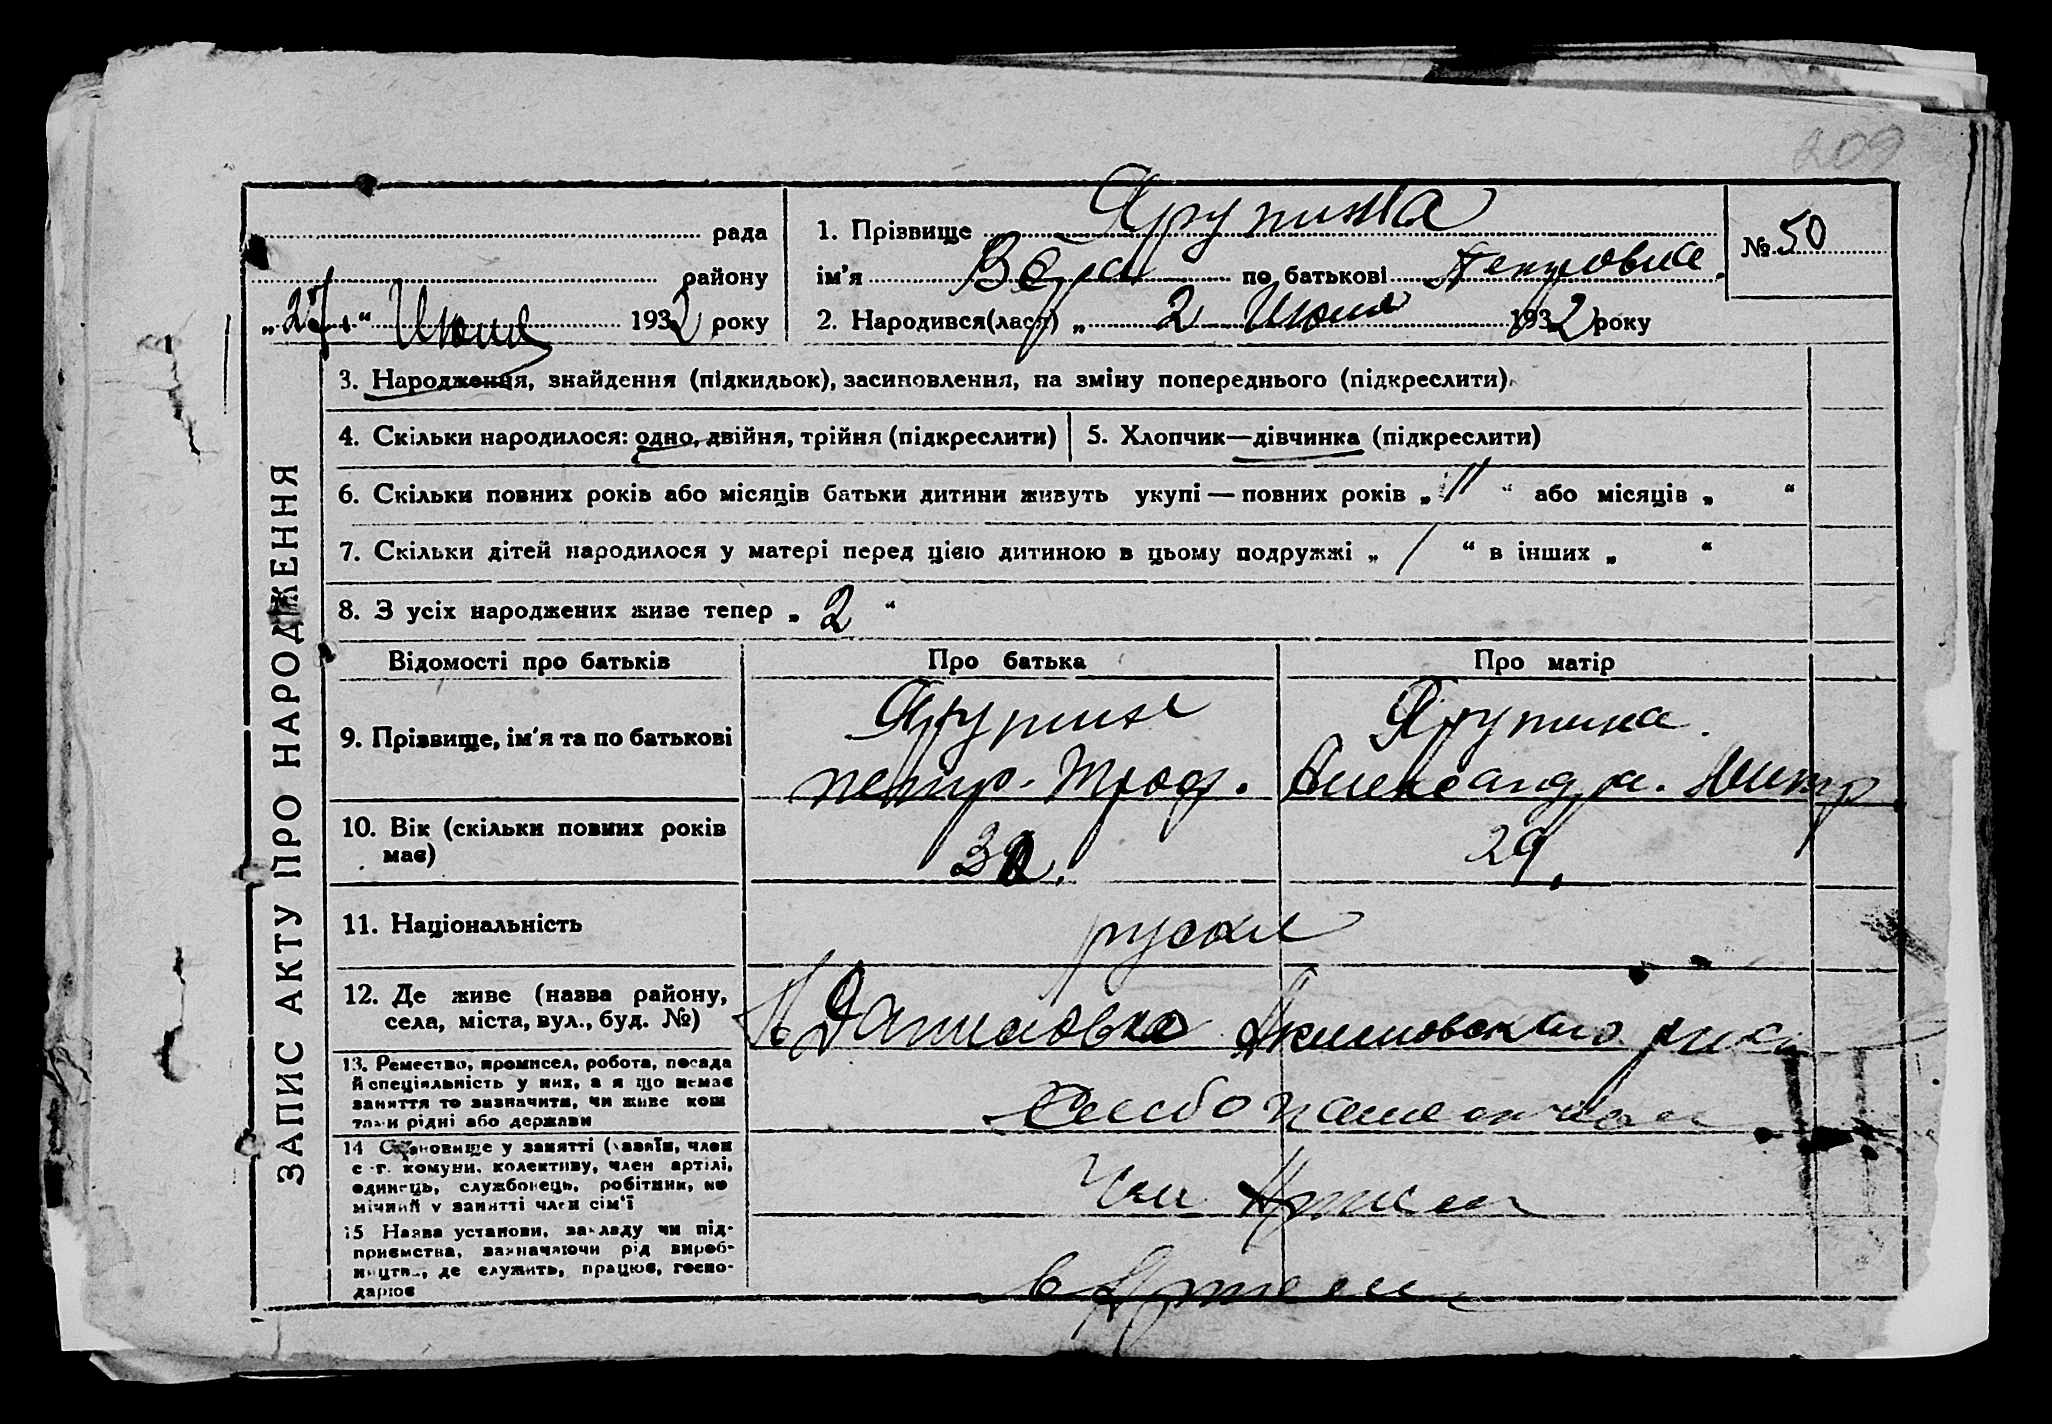 209
рада
району
" " Июня 1932 року
1. Прізвище Ярупина
ім'я Вера по батькові Петровна.
2. Народився(лася) „ 2 Июня 1932 року
№ 50
ЗАПИС АКТУ ПРО НАРОДЖЕННЯ
3. Народження, знайдення (підкидьок), засиновлення, на зміну попереднього (підкреслити)
4. Скільки народилося: одно, двійня, трійня (підкреслити)
5. Хлопчик—дівчинка (підкреслити)
6. Скільки повних років або місяців батьки дитини живуть укупі — повних років „ 11 “ або місяців „ “
7. Скільки дітей народилося у матері перед цією дитиною в цьому подружжі „ 1 “ в інших „ “
8. З усіх народжених живе тепер „ 2 “
Відомості про батьків
Про батька
Про матір
9. Прізвище, ім'я та по батькові
Ярупин
Петр. Троф.
Ярупина.
Александра. Дмитр
10. Вік (скільки повних років
має)
29.
11. Національність
русские
12. Де живе (назва району,
села, міста, вул., буд. №)
Даниловка Акимовского района
13. Ремество, промисел, робота, посада
й спеціяльність у них, а я що немає
заняття то зазначити, чи живе кош
тами рідні або держави
Хлебопашенчеством
14 Становище у занятті (хазяїн, член
с.-г. комуни, колективу, член артілі,
одинець, службовець, робітник, по
мічний у занятті член сім'ї
Чл. Артели
15 Назва установи, закладу чи під-
приємства, зазначаючи рід вироб-
ництва, де служить, працює, госпо-
дарює
в Артели